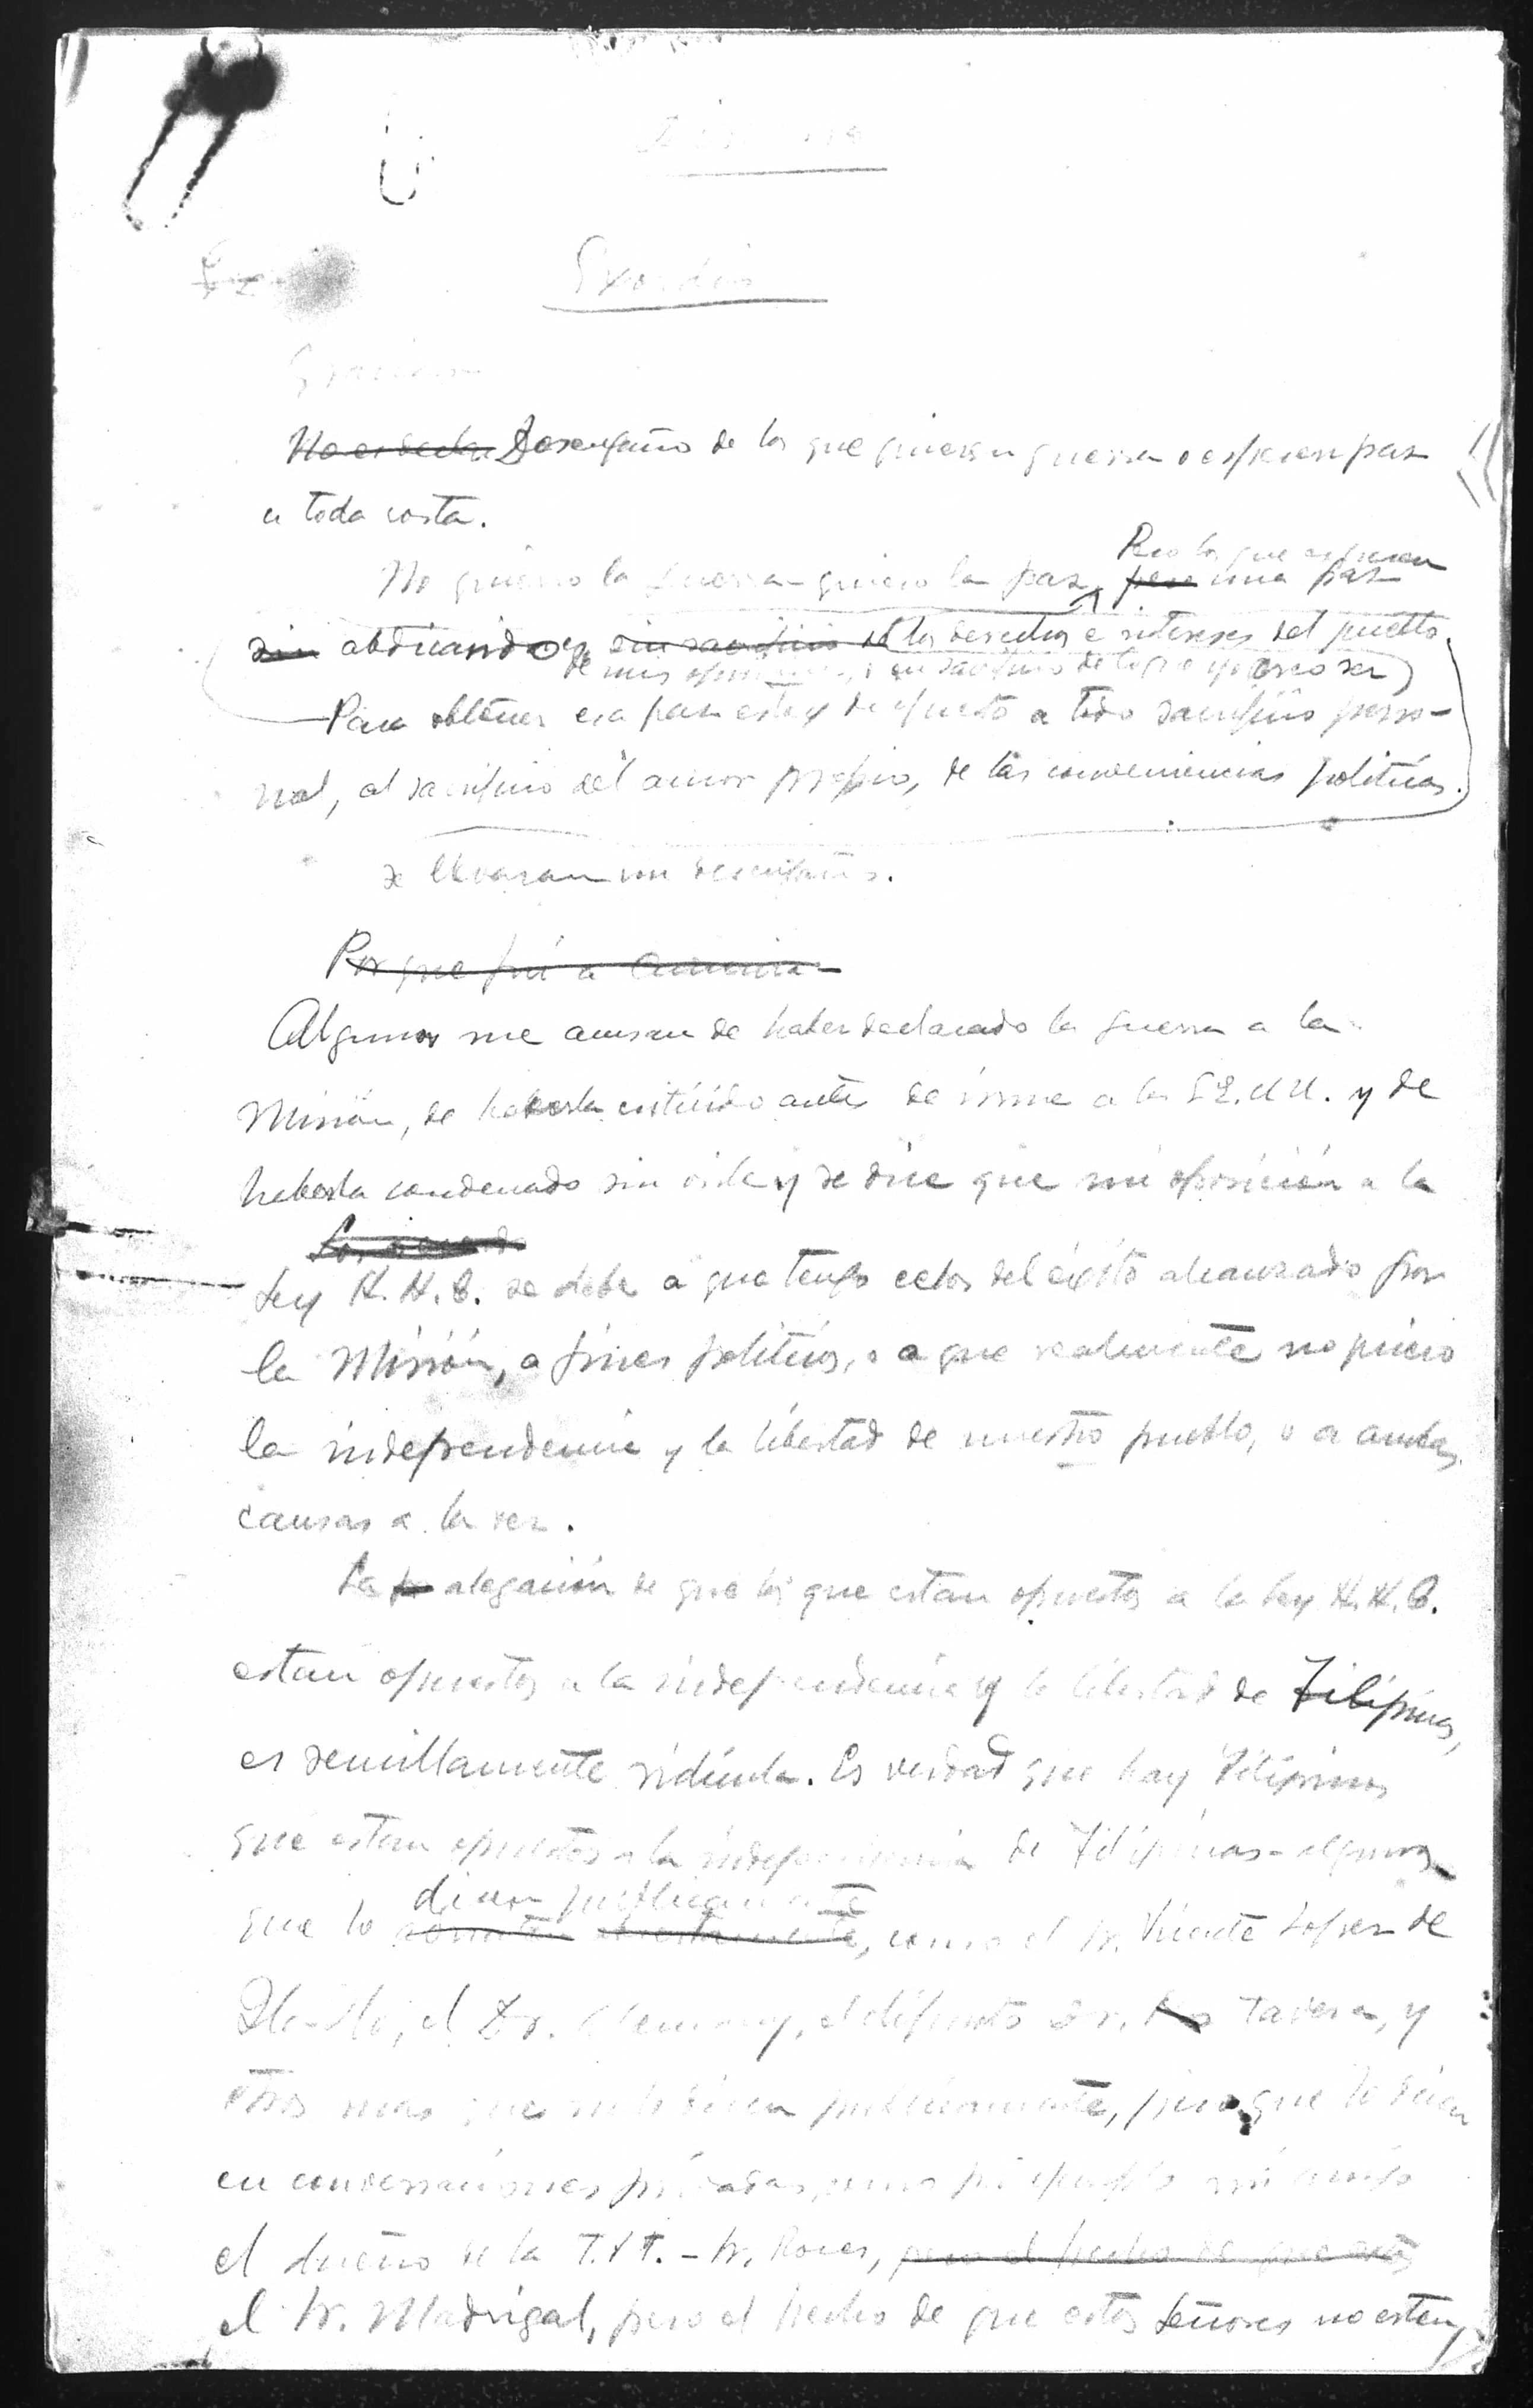 Exordio
Gracias
No es decla Desengaño de los que quieran guerra o esperan paz
a toda costa.
Pero los que esperan
No quiero la guerra - quiero la paz, pero una paz
sin abdicando sin sacrificio de los derechos e intereses del pueblo.
de mis
Para obtener esa paz estoy dispuesto a todo sacrificio perso-
nal, al sacrificio del amor propio, de las conveniencias politicas.
se llevaran un desengaño.
Por que fui a America
Algunos me acusan de haber declarado la guerra a la
Mision, de haberla criticado antes de irme a los EE.UU. y de
haberla condenado sin oirla y se dice que mi oposición a la
Ley H.H.C. se debe a que tengo celos del éxito alcanzado por
la Misión, a fines politicos, o a que realmente no quiero
la independencia y la libertad de nuestro pueblo, o a ambas
causas a la vez.
La alegación de que los que estan opuestos a la ley H.H.C.
estan opuestos a la independencia y la libertad de Filipinas,
es sencillamente ridicula. Es verdad que hay Filipinos
que estan opuestos a la independencia de Filipinas - algunos
dicen publicamente
que lo admiten abiertamente, como el Sr. Vicente Lopez de
el Dr. el difunto Dr. Tavera, y
otros mas que no lo dicen publicamente, pero que lo dicen
en conversaciones privadas, como por ejemplo mi amigo
el dueño de la T.V.T. - Sr. Roces, pero el hecho de que estos
el Sr. Madrigal, pero el hecho de que estos Señores no esten